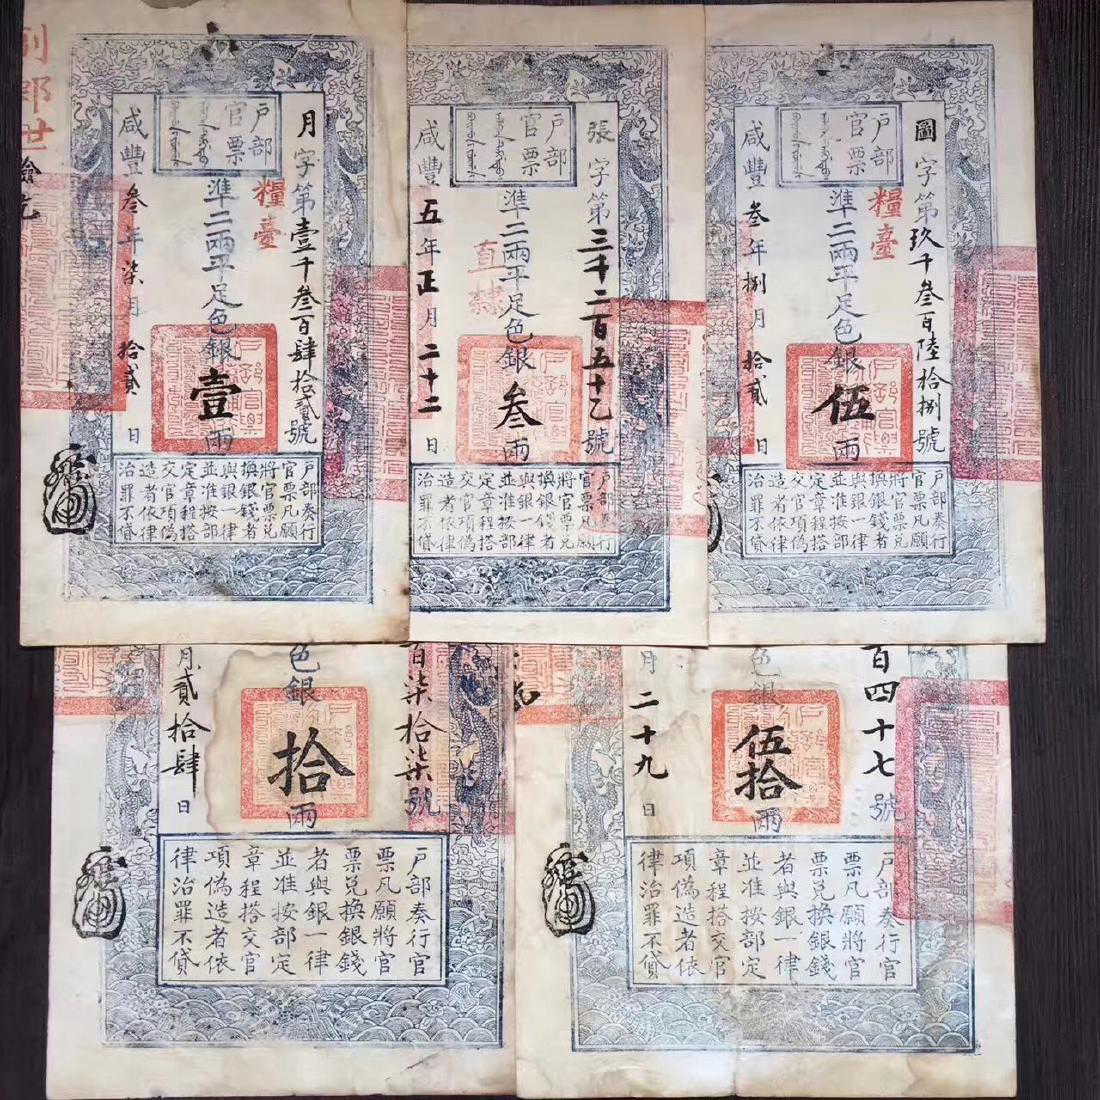 戶部
官票
月字第壹千叁百肆拾貳號
糧臺
準二兩平足色銀壹兩
咸豐叁年柒月拾貳日
戶部奏行
官票凡願
將官票兌
換銀錢者
與銀一律
並准按部
定章程搭
交官項偽
造者依律
治罪不貸
戶部
官票
張字第三千二百五十乙號
準二兩平足色銀叁兩
直隸
咸豐五年正月二十二日
戶部奏行
官票凡願
將官票兌
換銀錢者
與銀一律
並准按部
定章程搭
交官項偽
造者依律
治罪不貸
戶部
官票
圖字第玖千叁百陸拾捌號
糧臺
準二兩平足色銀伍兩
咸豐叁年捌月拾貳日
戶部奏行
官票凡願
將官票兌
換銀錢者
與銀一律
並准按部
定章程搭
交官項偽
造者依律
治罪不貸
百柒拾柒號
色銀拾兩
月貳拾肆日
戶部奏行官
票凡願將官
票兌換銀錢
者與銀一律
並准按部定
章程搭交官
項偽造者依
律治罪不貸
百四十七號
色銀伍拾兩
月二十九日
戶部奏行官
票凡願將官
票兌換銀錢
者與銀一律
並准按部定
章程搭交官
項偽造者依
律治罪不貸